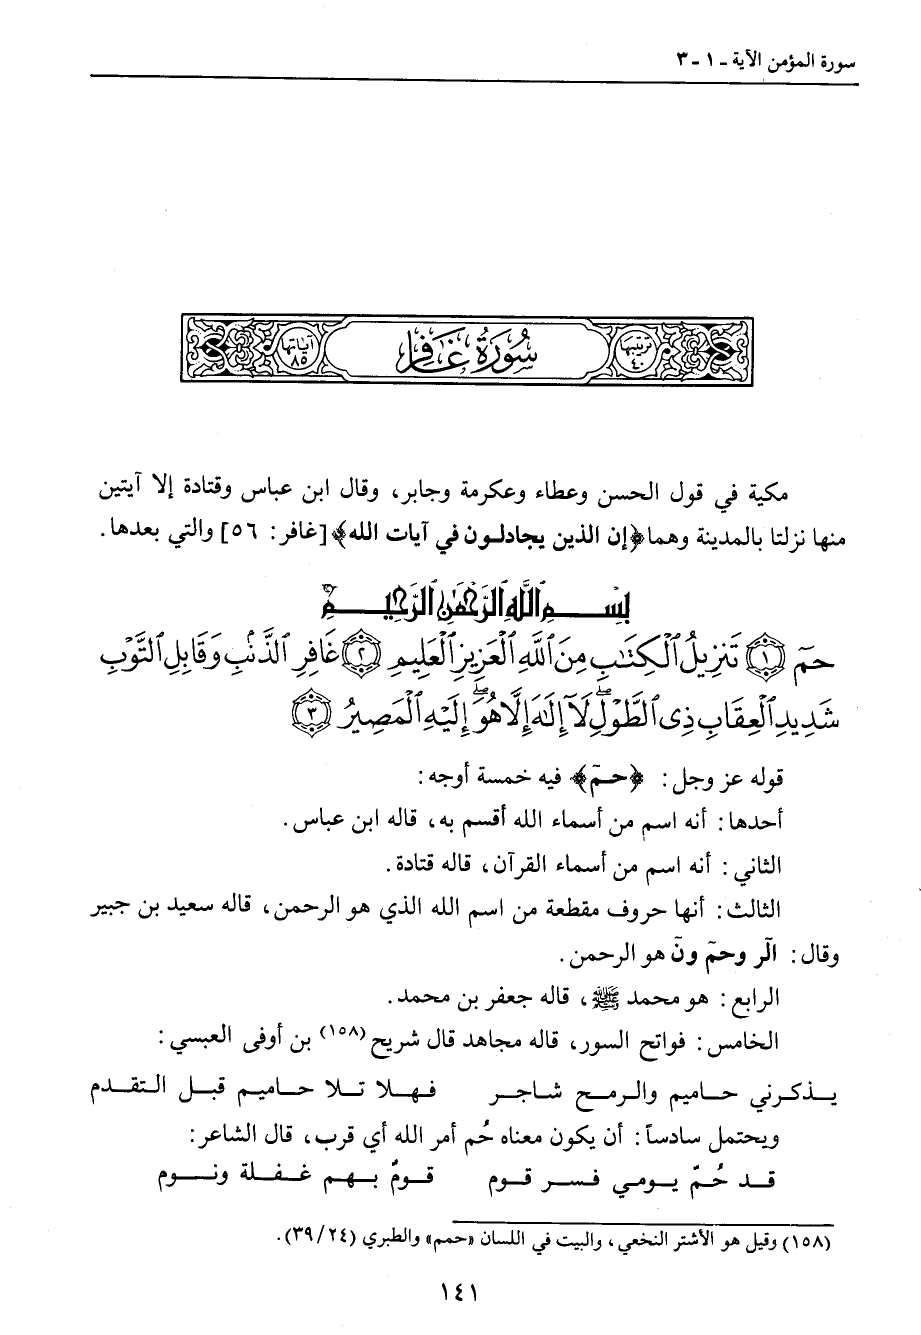 سورة المؤمن الآية - ١ - ٣
ترتيبها ٤٠
سُورَةُ غَافِرٍ
آياتها ٨٥
مكية في قول الحسن وعطاء وعكرمة وجابر، وقال ابن عباس وقتادة إلا آيتين
منها نزلتا بالمدينة وهما ﴿إن الذين يجادلون في آيات الله﴾ [غافر: ٥٦] والتي بعدها.
بِسْمِ ٱللَّهِ ٱلرَّحْمَٰنِ ٱلرَّحِيمِ
حمٓ ﴿١﴾ تَنزِيلُ ٱلْكِتَٰبِ مِنَ ٱللَّهِ ٱلْعَزِيزِ ٱلْعَلِيمِ ﴿٢﴾ غَافِرِ ٱلذَّنۢبِ وَقَابِلِ ٱلتَّوْبِ
شَدِيدِ ٱلْعِقَابِ ذِى ٱلطَّوْلِۖ لَآ إِلَٰهَ إِلَّا هُوَۖ إِلَيْهِ ٱلْمَصِيرُ ﴿٣﴾
قوله عز وجل: ﴿حمٓ﴾ فيه خمسة أوجه:
أحدها: أنه اسم من أسماء الله أقسم به، قاله ابن عباس.
الثاني: أنه اسم من أسماء القرآن، قاله قتادة.
الثالث: أنها حروف مقطعة من اسم الله الذي هو الرحمن، قاله سعيد بن جبير
وقال: الٓر وحمٓ ونٓ هو الرحمن.
الرابع: هو محمد ﷺ، قاله جعفر بن محمد.
الخامس: فواتح السور، قاله مجاهد قال شريح (١٥٨) بن أوفى العبسي:
يـذكـرني حـاميم والرمـح شـاجـر فـهـلا تـلا حـاميـم قبـل التقـدم
ويحتمل سادساً: أن يكون معناه حُم أمر الله أي قرب، قال الشاعر:
قـد حُمّ يـومـي فـسـر قـوم قـومٌ بـهـم غـفـلـة ونـوم
(١٥٨) وقيل هو الأشتر النخعي، والبيت في اللسان «حمم» والطبري (٢٤/ ٣٩).
١٤١